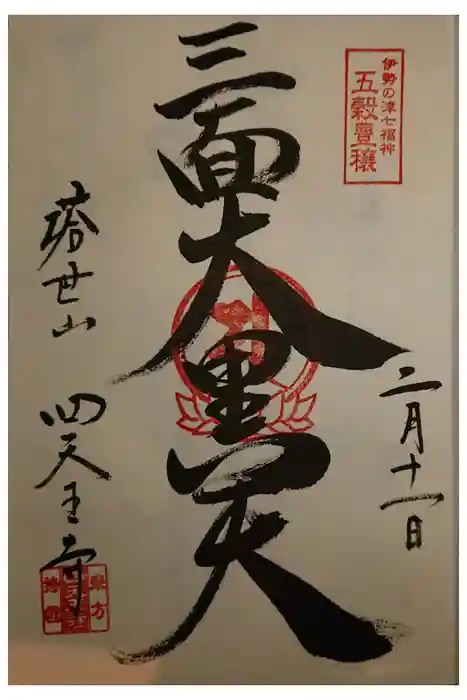 伊勢の津七福神
五穀豊穣
二月十一日
三面大黒天
塔世山 四天王寺